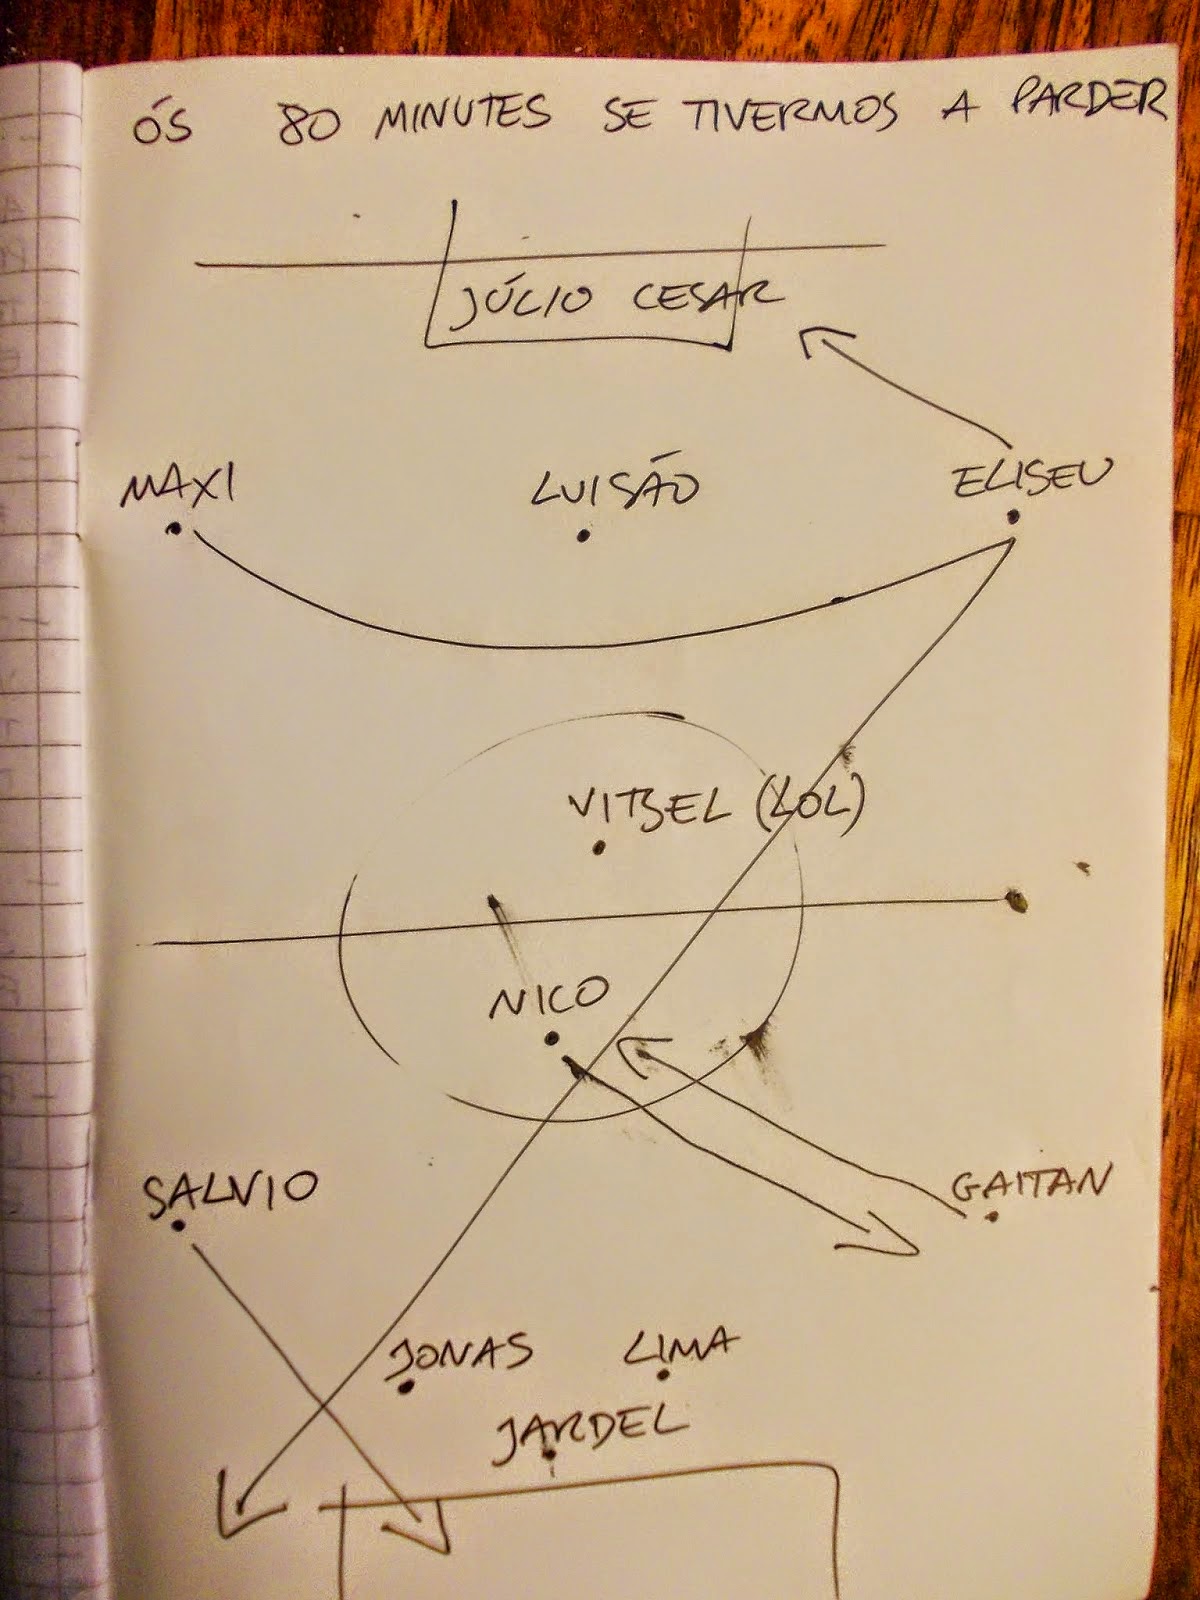 ÓS 80 MINUTES SE TIVERMOS A PARDER
JÚLIO CESAR
MAXI LUISÃO ELISEU
VITSEL (LOL)
NICO
SALVIO GAITAN
JONAS LIMA
JARDEL